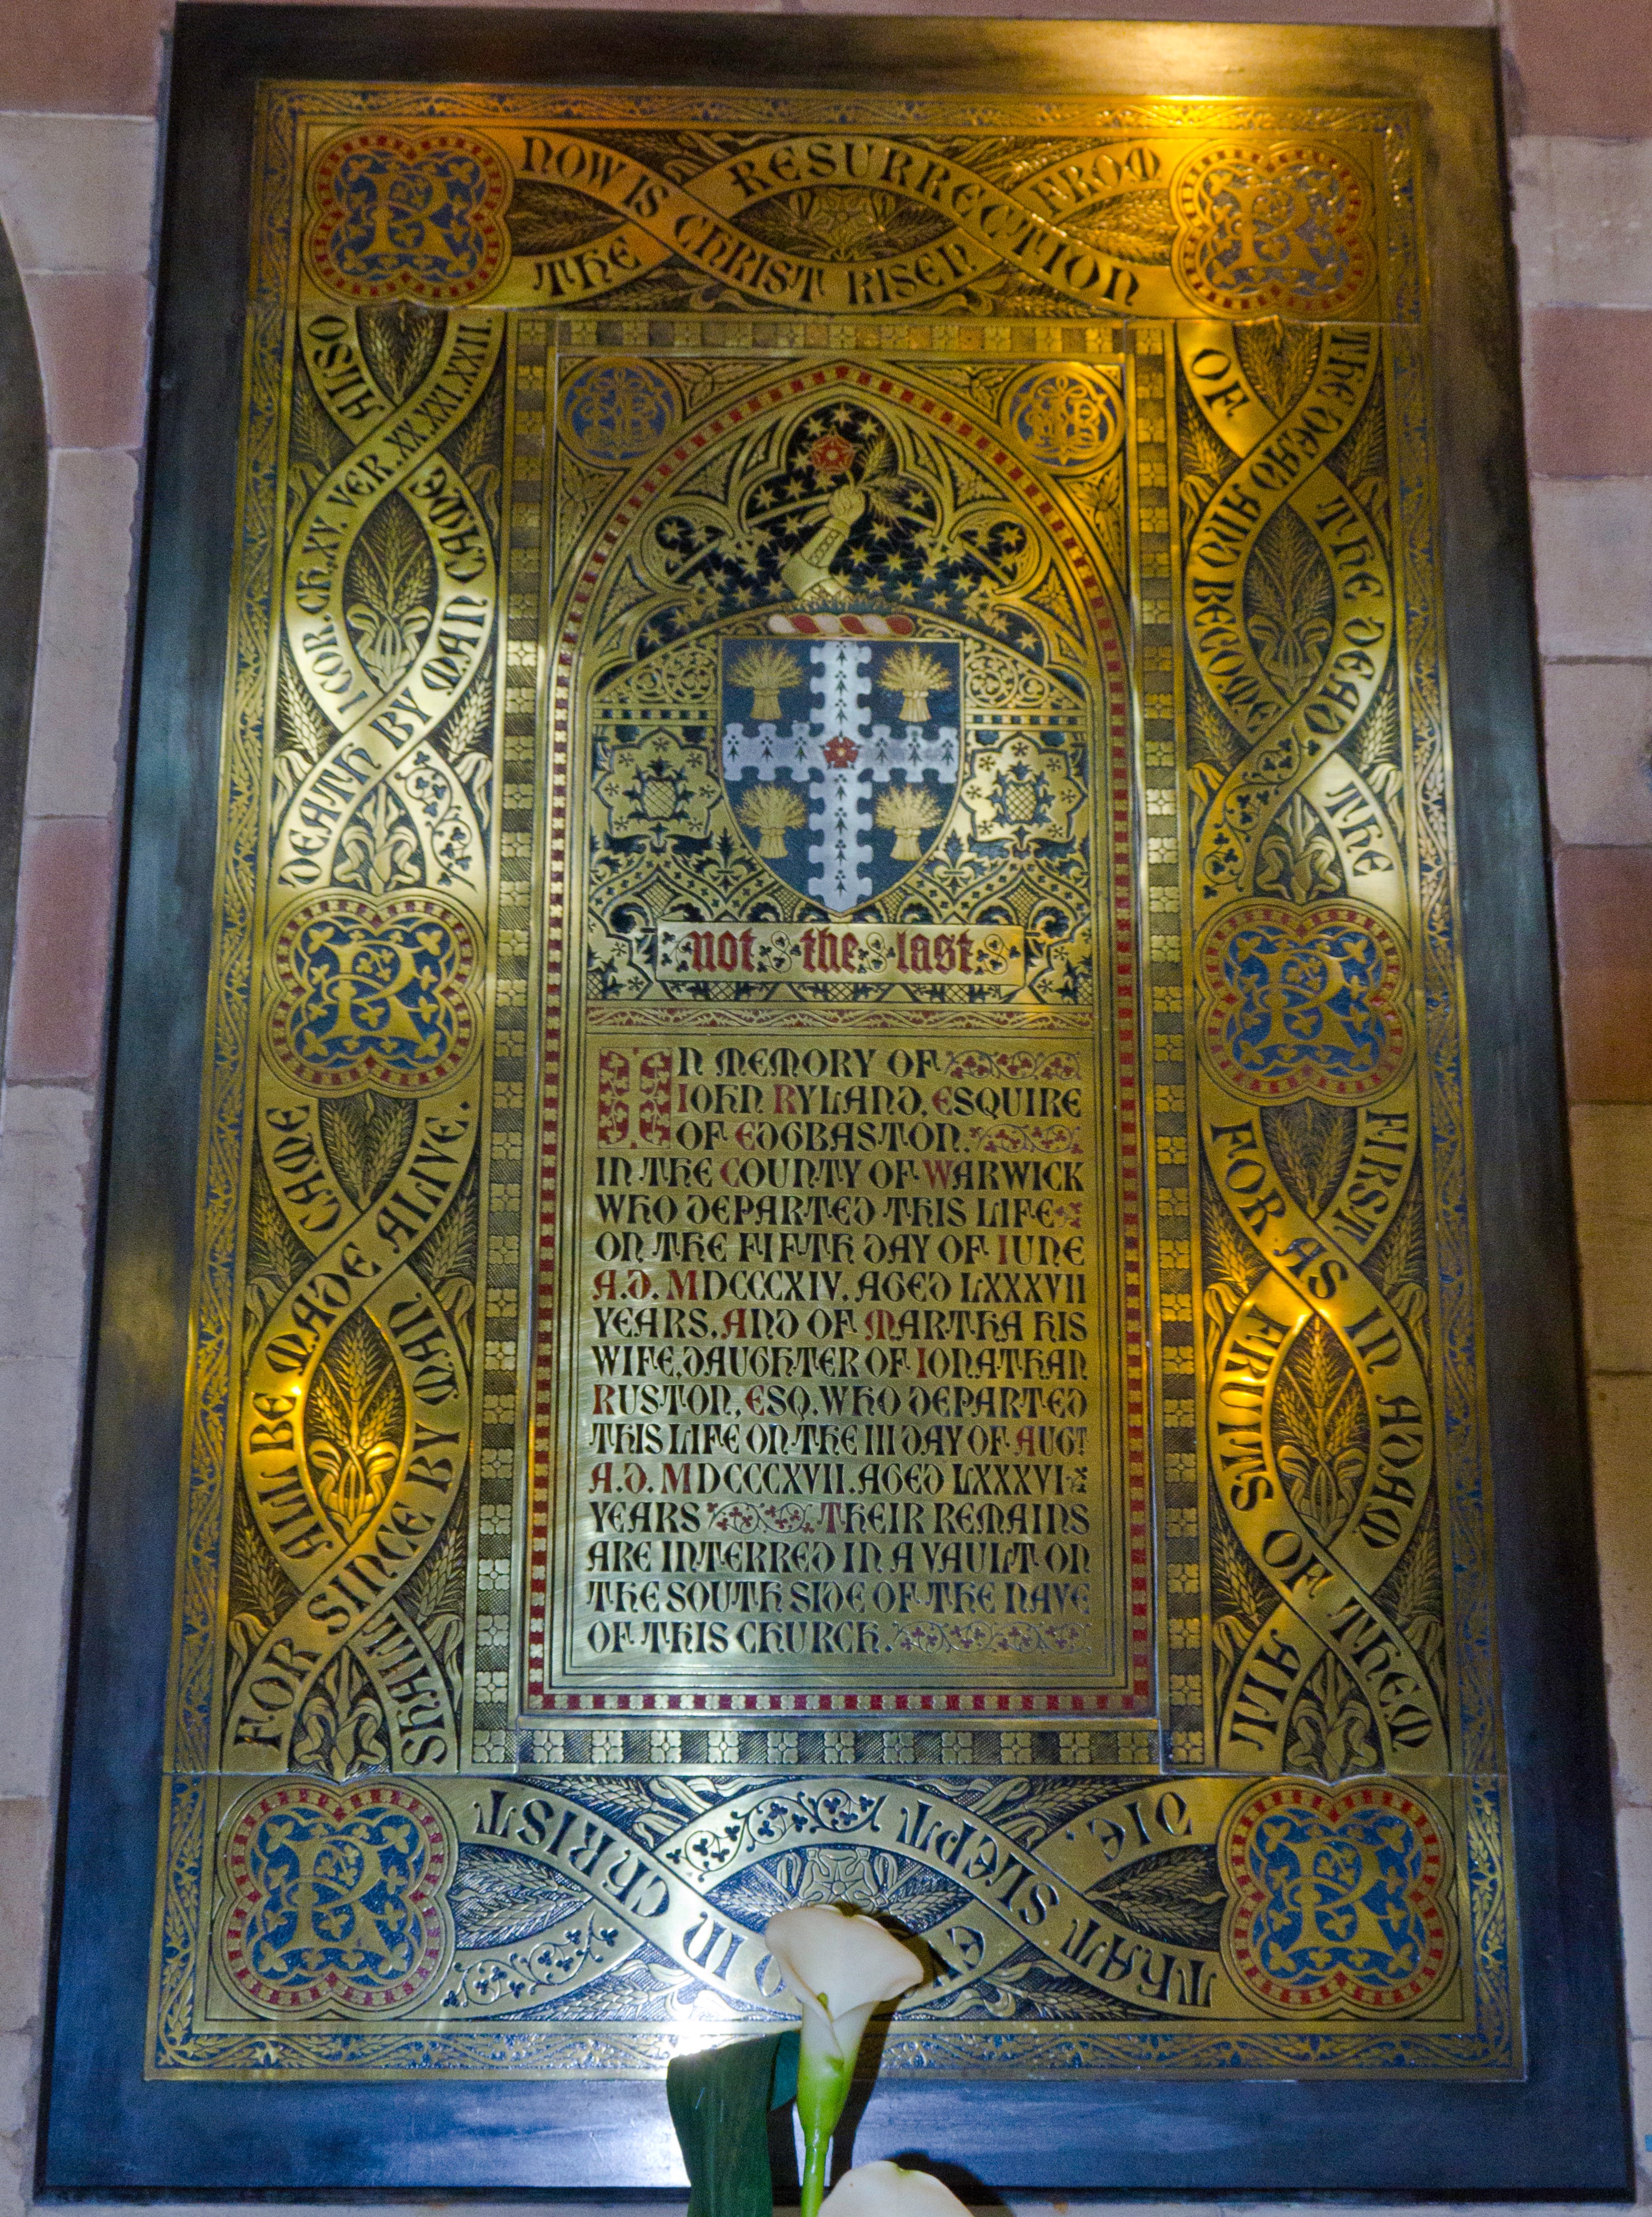 NOW IS CHRIST RISEN FROM
THE RESURRECTION
THE DEAD AND BECOME
OF THE DEAD. THE
FIRST FRUITS OF THEM
FOR AS IN ADAM ALL
THAT SLEPT
DIE,
IN CHRIST
SHALL ALL BE MADE ALIVE.
FOR SINCE BY MAN CAME
DEATH BY MAN CAME ALSO
I COR. CH. XV. VER. XX. XXI. XXII.
R
R
R
R
R
R
not the last
IN MEMORY OF
IOHN RYLAND, ESQUIRE
OF EDGBASTON.
IN THE COUNTY OF WARWICK
WHO DEPARTED THIS LIFE
ON THE FIFTH DAY OF IUNE
A.D. MDCCCXIV. AGED LXXXVII
YEARS. AND OF MARTHA HIS
WIFE, DAUGHTER OF IONATHAN
RUSTON, ESQ. WHO DEPARTED
THIS LIFE ON THE III DAY OF AUGT
A.D. MDCCCXVII. AGED LXXXVI
YEARS THEIR REMAINS
ARE INTERRED IN A VAULT ON
THE SOUTH SIDE OF THE NAVE
OF THIS CHURCH.